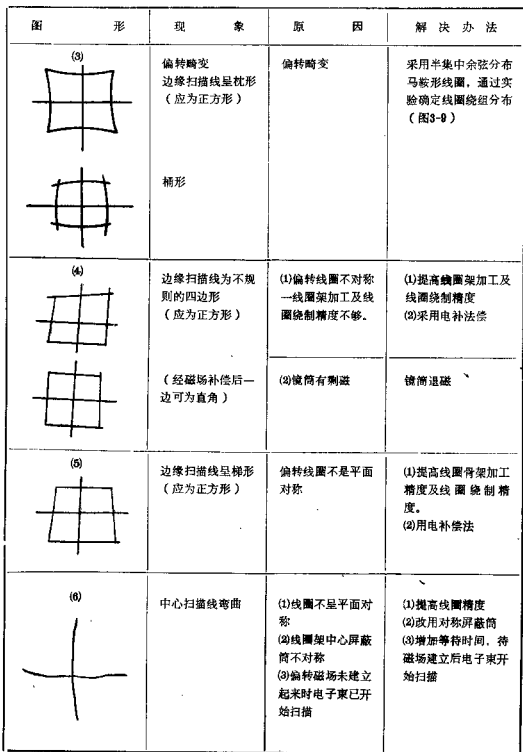 图 形 现 象 原 因 解 决 办 法
(3)
偏转畸变
边缘扫描线呈枕形
（应为正方形）
偏转畸变
采用半集中余弦分布
马鞍形线圈，通过实
验确定线圈绕组分布
（图3-9）
桶形
(4)
边缘扫描线为不规
则的四边形
（应为正方形）
(1)偏转线圈不对称
一线圈架加工及线
圈绕制精度不够。
(1)提高线圈架加工及
线圈绕制精度
(2)采用电补法偿
（经磁场补偿后一
边可为直角）
(2)镜筒有剩磁
镜筒退磁
(5)
边缘扫描线呈梯形
（应为正方形）
偏转线圈不是平面
对称
(1)提高线圈骨架加工
精度及线圈绕制精
度。
(2)用电补偿法
(6)
中心扫描线弯曲
(1)线圈不呈平面对
称
(2)线圈架中心屏蔽
筒不对称
(3)偏转磁场未建立
起来时电子束已开
始扫描
(1)提高线圈精度
(2)改用对称屏蔽筒
(3)增加等待时间，待
磁场建立后电子束开
始扫描